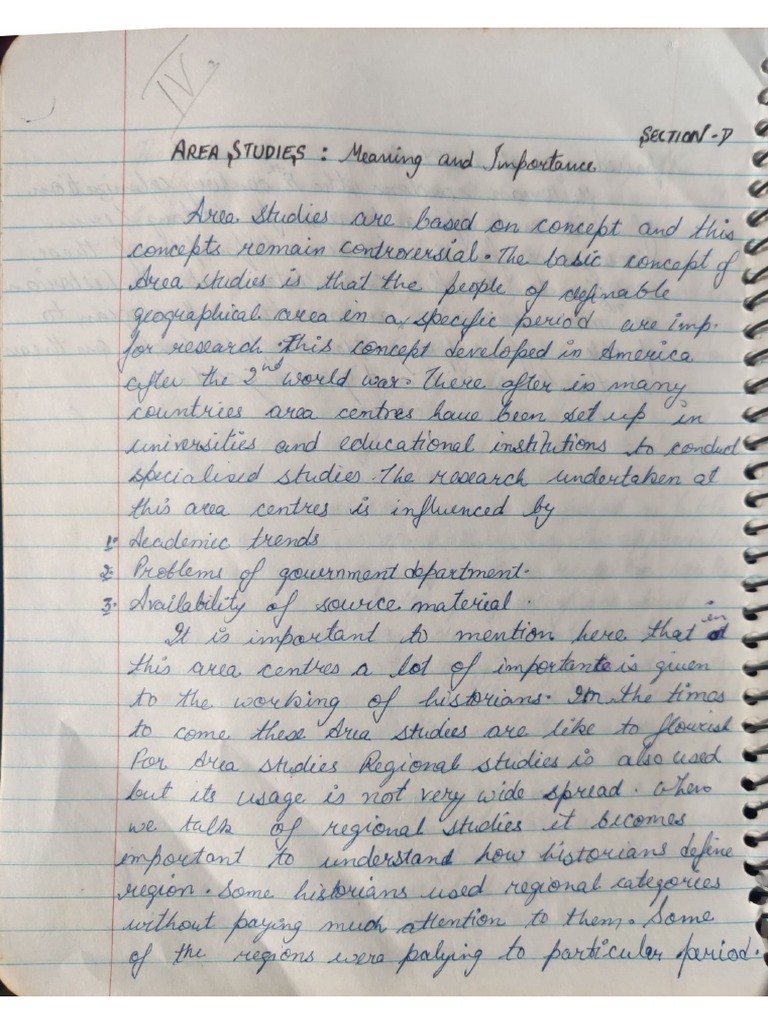 IV.
SECTION-D
AREA STUDIES : Meaning and Importance
Area Studies are based on concept and this
concepts remain controversial. The basic concept of
Area studies is that the people of definable
geographical area in a specific period are imp.
for research. This concept developed in America
after the 2nd world war. There after in many
countries area centres have been set up in
universities and educational institutions to conduct
specialised studies. The research undertaken at
this area centres is influenced by
1. Academic trends
2. Problems of government department.
3. Availability of source material.
It is important to mention here that in
this area centres a lot of importante is given
to the working of historians. In the times
to come these Area studies are like to flourish
For Area studies Regional studies is also used
but its usage is not very wide spread. When
we talk of regional studies it becomes
important to understand how historians define
region. Some historians used regional categories
without paying much attention to them. Some
of the regions were palying to particular period.